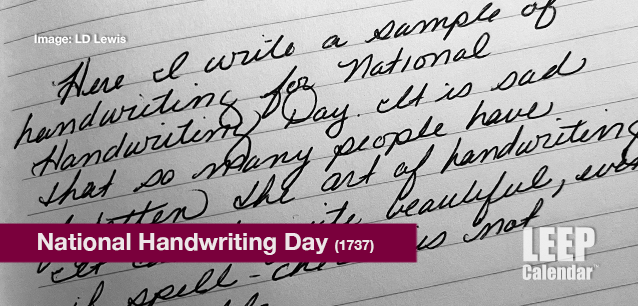 Image: LD Lewis
Here I write a sample of
handwriting for National
Handwriting Day. It is sad
that so many people have
the art of handwriting
It beautiful, even
if spell- is not
National Handwriting Day (1737)
LEEP
Calendar™